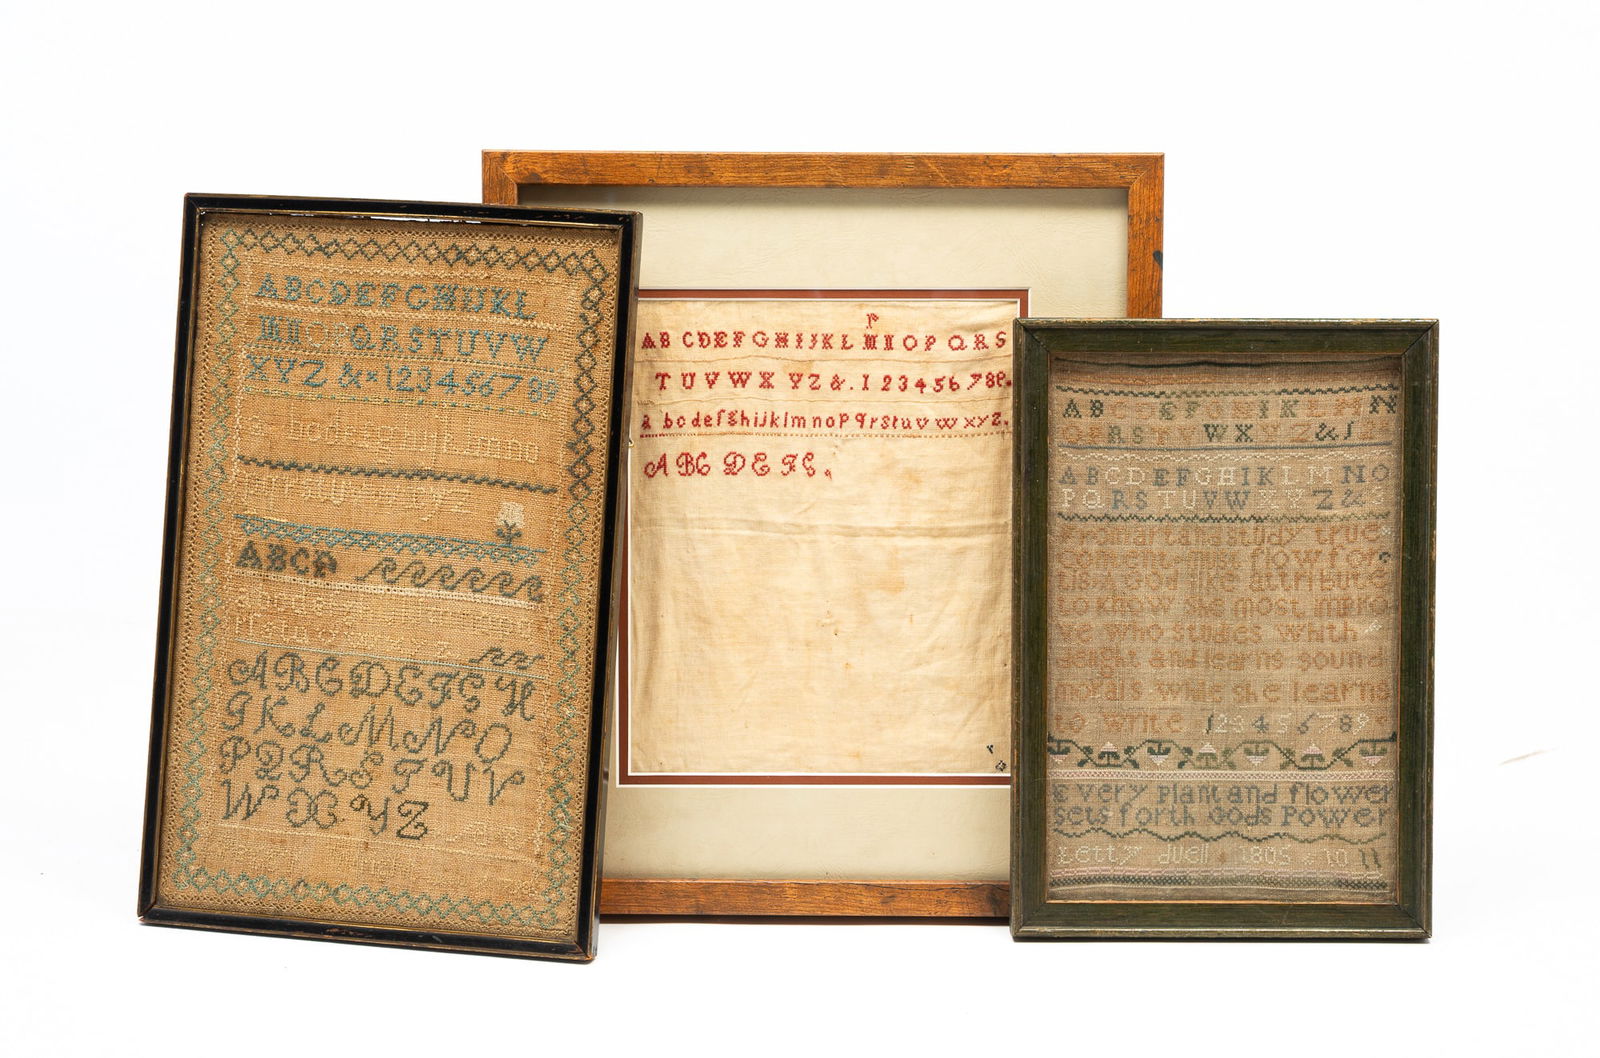 ABCDEFGHIJKL
MNOPQRSTUVW
XYZ &•123456789
ABCD
ABCDEFGH
IKLMNO
PQRSTUV
WXYZ
P
ABCDEFGHIJKLMNOPQRS
TUVWXYZ&.1234567890.
a bcdefghijklmnopqrstuvwxyz.
ABCDEFG.
ABCDEFGHIKLMN
OPQRSTVWXYZ&12
ABCDEFGHIKLMNO
PQRSTUVWXYZ&3
From art and study true
Content must flow for
tis A God like attribute
to know she most impro
ve who studies whith
delight and learns sound
morals while she learns
to write 123456789
Every plant and flower
sets forth Gods Power
Letty duell 1805 10 11